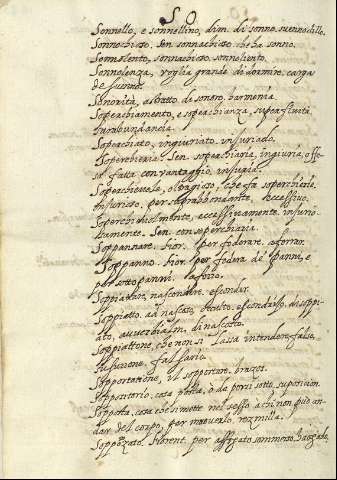 SO
Sonnello, e sonnellino, dim. di sonno. sueñecillo.
Sonnochioso. Sen. sonnachioso. che ha sonno.
Somnolento, sonnachioso. sonnoliento.
Sonnolenza, voglia grande di dormire. carga
de sueño.
Sonorità, astratto de sonoro. harmonia.
Soperchiamento, e soperchianza, superfluità.
Soperchiato, ingiuriato. injuriado.
Soperchieria. Sen. soperchiaria, ingiuria, offe-
sa fatta con vantaggio. injuria.
Soperchievole, oltragioso, che fa soperchierie.
injurioso. per soprabondante. eccessivo.
Soperchievolmente, eccessivamente.
Sen. con soperchiaria.
Soppannare. Fior. per foderare. aforrar.
Soppanno. Fior. per fodera de' panni, e
per sotto panni. 
Soppiattare, nascondere. esconder.
Soppiatto. ad. nascosto, occulto. escondido. di soppi-
atto, avverbialm. di nascosto.
Soppiattone, che non si lassa intendere. falso.
falsario.
Sopportatione, il sopportare.
Suppositorio, cosa posta, ò da porsi sotto. suposicion.
Sopposta, cosa che si mette nel sesso à chi non può an-
dar del corpo, per muoverlo.
Soppozzato. Fiorent. per affogato sommerso. haogado.